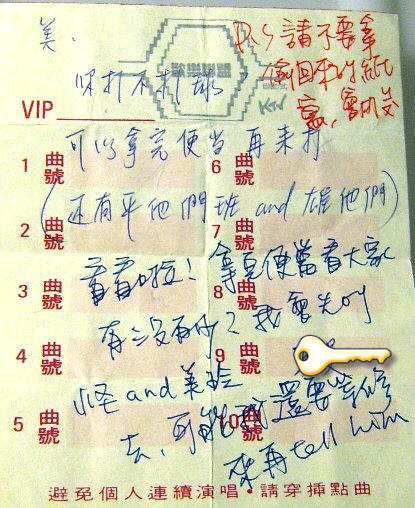 美.
P.S 請不要拿
偷回來的紙
寫, 
歡樂聯盟
呀打不打球?
VIP
可以拿完便當 再來打
1 曲號 6 曲號
(還有平他們班 and 雄他們)
2 曲號 7 曲號
看看啦! 拿完便當看大家
3 曲號 8 曲號
有沒有
4 曲號 9 曲號
and 美
5 曲號 10 曲號
去, 可能 還要等
來再 tell him
避免個人連續演唱・請穿挿點曲